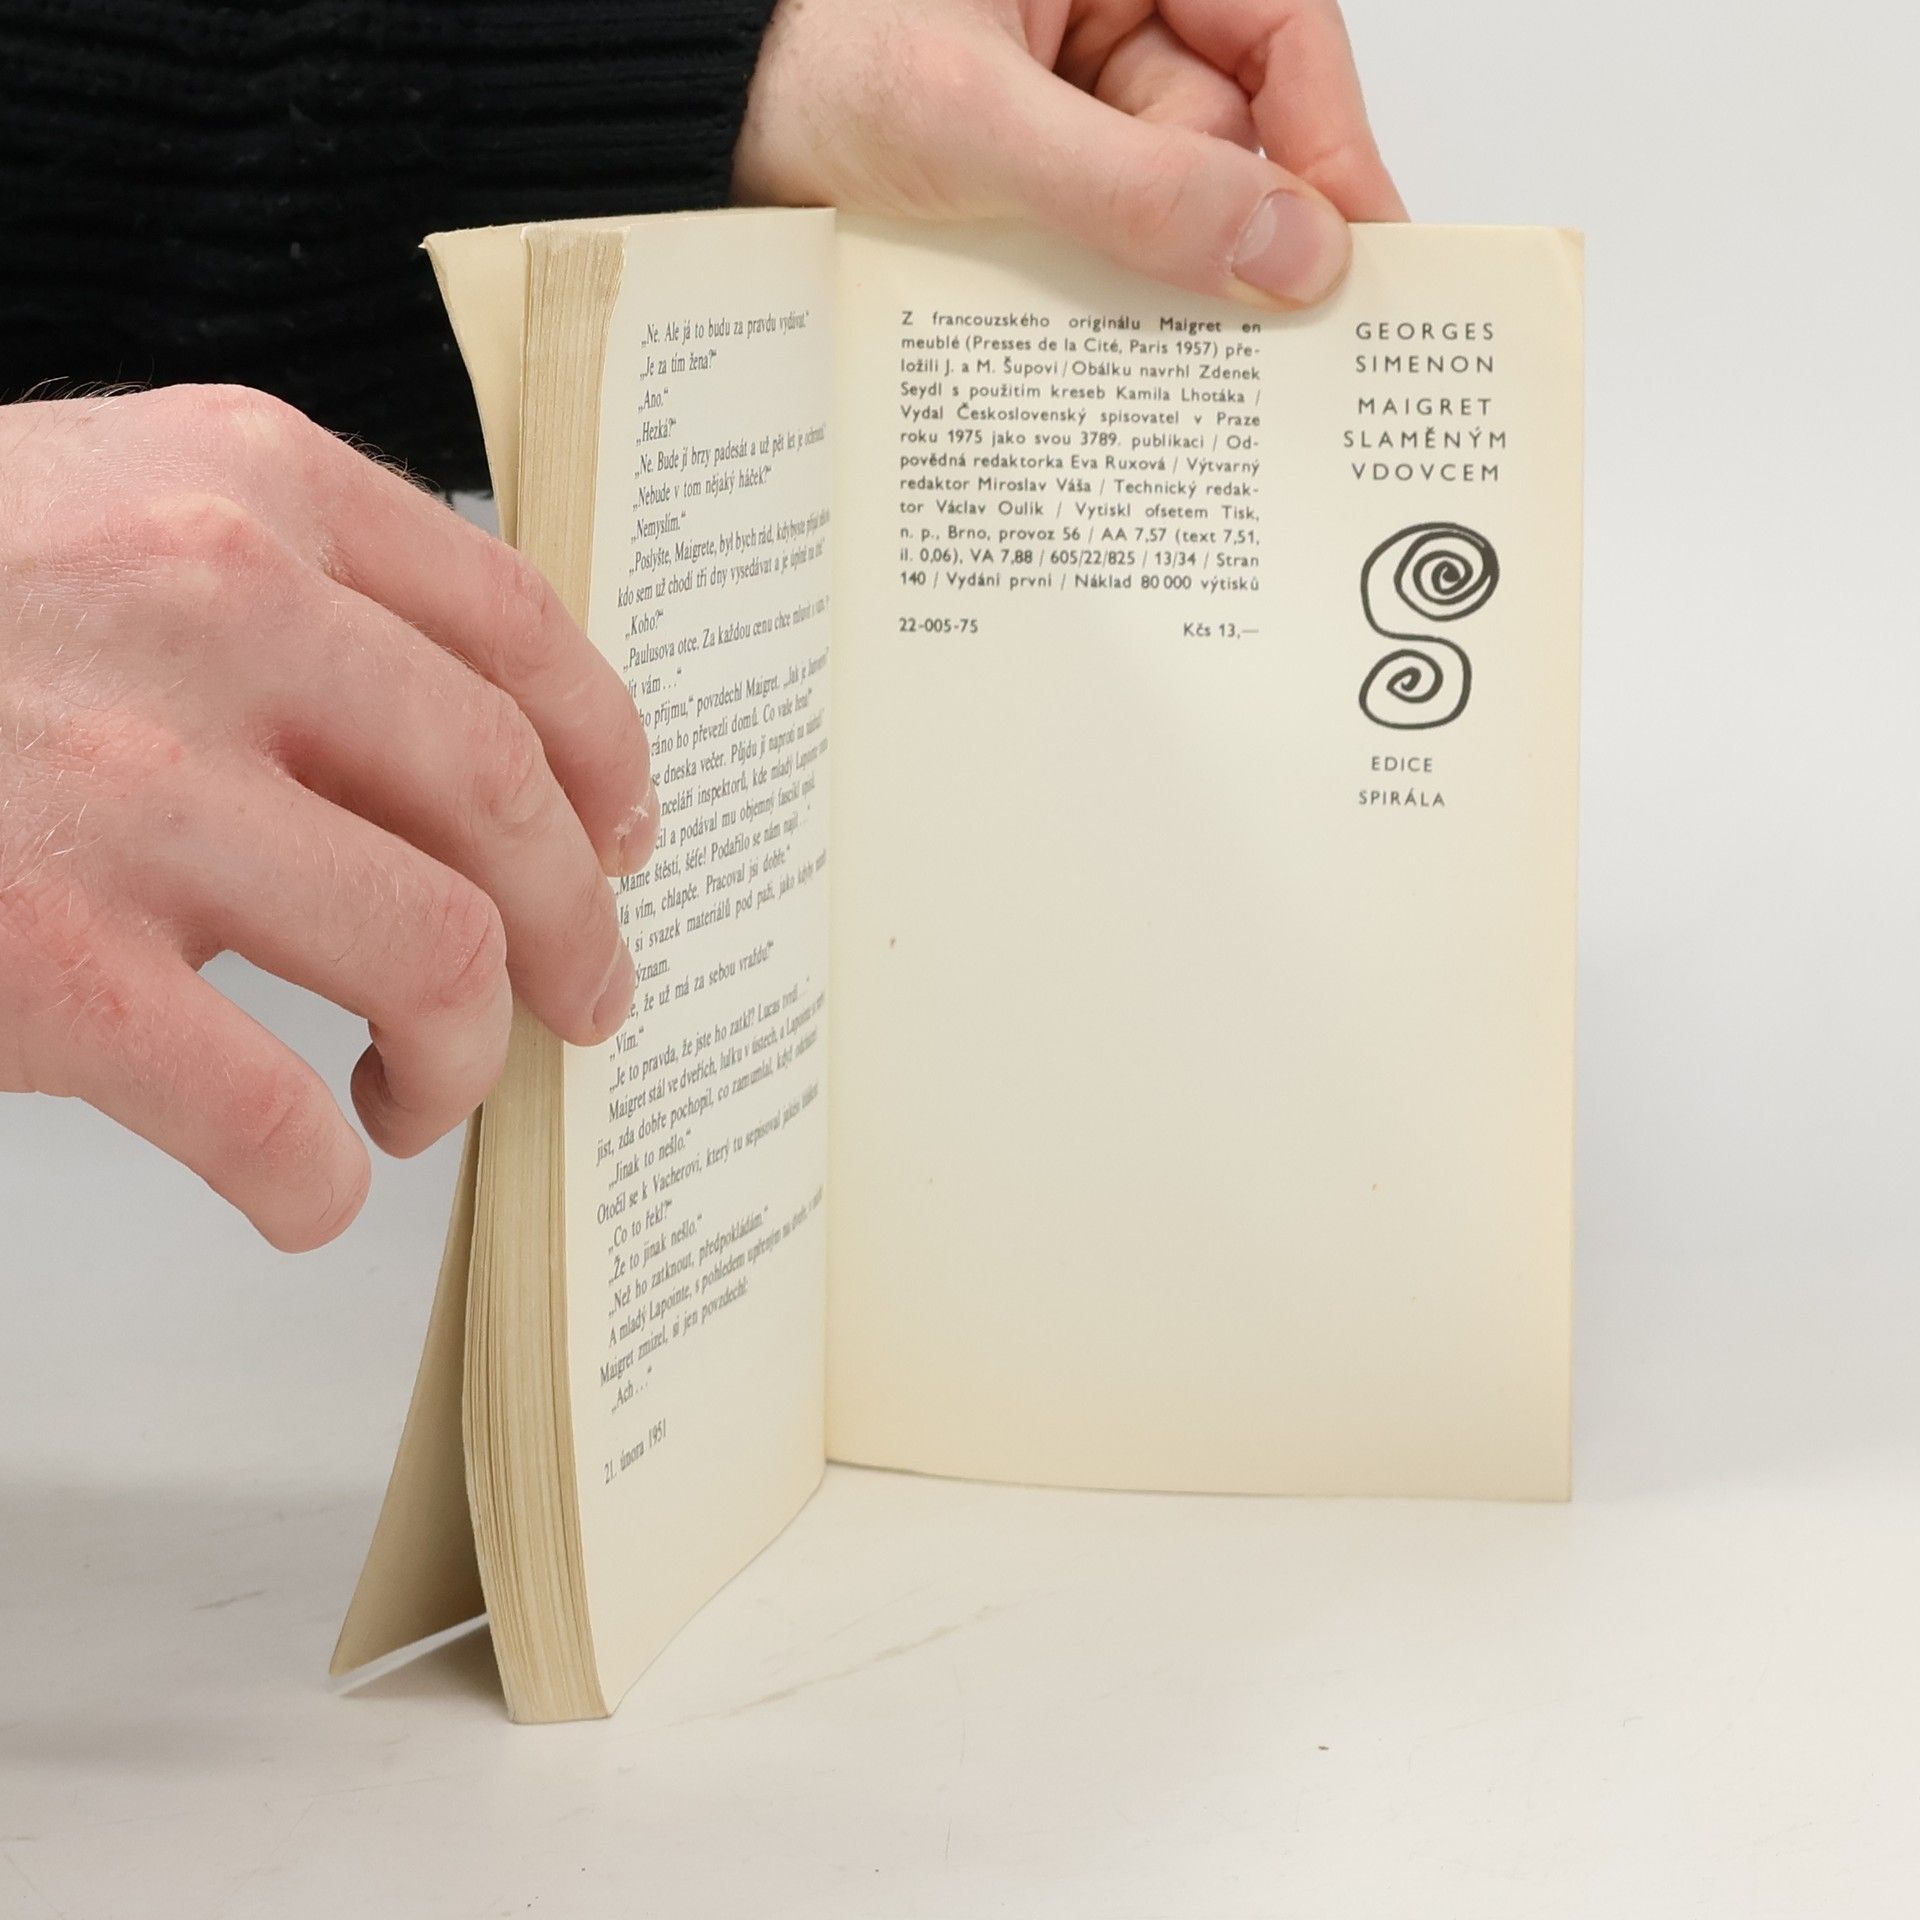 „Ne. Ale já to budu za pravdu vydávat.“
„Je za tím žena?“
„Ano.“
„Hezká?“
„Ne. Bude jí brzy padesát a už pět let je ochrnutá.“
„Nebude v tom nějaký háček?“
„Nemyslím.“
„Poslyšte, Maigrete, byl bych rád, kdybyste přijal
kdo sem už chodí tři dny vysedávat a je úplně na dně.“
„Koho?“
„Paulusova otce. Za každou cenu chce mluvit s vám
vám . . .“
přijmu,“ povzdechl Maigret. „Jak je Janvierovi?“
ráno ho převezli domů. Co vaše žena?“
se dneska večer. Půjdu jí naproti na nádraží.“
inspektorů, kde mladý Lapointe
a podával mu objemný fascikl spisů.
„Máme štěstí, šéfe! Podařilo se nám najít . . .“
„Já vím, chlapče. Pracoval jsi dobře.“
si svazek materiálů pod paži, jako kdyby
význam.
že už má za sebou vraždu?“
„Vím.“
„Je to pravda, že jste ho zatkl? Lucas tvrdí . . .“
Maigret stál ve dveřích, lulku v ústech, a Lapointe si
jist, zda dobře pochopil, co zamumlal, když odcházel:
„Jinak to nešlo.“
Otočil se k Vacherovi, který tu sepisoval jakési hlášení
„Co to řekl?“
„Že to jinak nešlo.“
„Než ho zatknout, předpokládám.“
A mladý Lapointe, s pohledem upřeným na dveře, v nichž
Maigret zmizel, si jen povzdechl:
„Ach . . .“
21. února 1951
Z francouzského originálu Maigret en
meublé (Presses de la Cité, Paris 1957) pře-
ložili J. a M. Šupovi / Obálku navrhl Zdenek
Seydl s použitím kreseb Kamila Lhotáka /
Vydal Československý spisovatel v Praze
roku 1975 jako svou 3789. publikaci / Od-
povědná redaktorka Eva Ruxová / Výtvarný
redaktor Miroslav Váša / Technický redak-
tor Václav Oulík / Vytiskl ofsetem Tisk,
n. p., Brno, provoz 56 / AA 7,57 (text 7,51,
il. 0,06), VA 7,88 / 605/22/825 / 13/34 / Stran
140 / Vydání první / Náklad 80 000 výtisků
22-005-75 Kčs 13,—
GEORGES
SIMENON
MAIGRET
SLAMĚNÝM
VDOVCEM
EDICE
SPIRÁLA